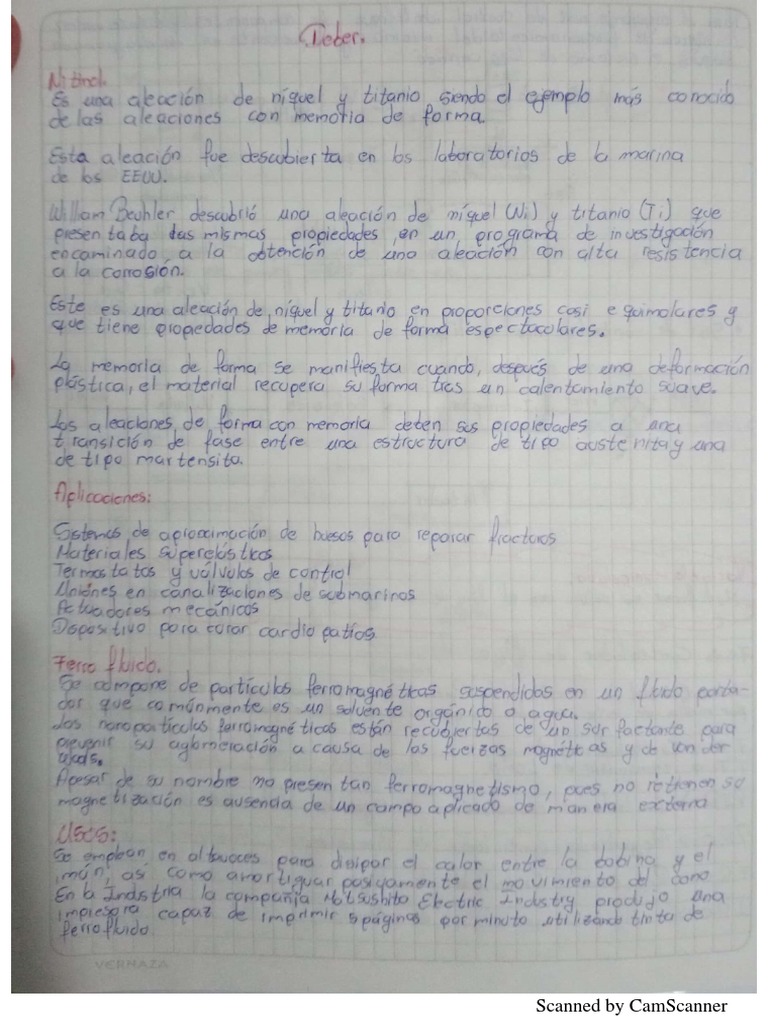 Deber.
Nitinol.
Es una aleación de níquel y titanio siendo el ejemplo más conocido
de las aleaciones con memoria de forma.
Esta aleación fue descubierta en los laboratorios de la marina
de los EEUU.
William Beuhler descubrió una aleación de níquel (Ni) y titanio (Ti) que
presentaba las mismas propiedades, en un programa de investigación
encaminado, a la obtención de una aleación con alta resistencia
a la corrosión.
Este es una aleación de, níquel y titanio en proporciones casi equimolares y
que tiene propiedades de memoria de forma espectaculares.
La memoria de forma se manifiesta cuando, después de una deformación
plástica, el material recupera su forma tras un calentamiento suave.
Los aleaciones, de forma con memoria deben sus propiedades a una
transición de fase entre una estructura de tipo austenita y una
de tipo martensita.
Aplicaciones:
Sistemas de aproximación de huesos para reparar fracturas
Materiales superelásticos
Termostatos y válvulas de control
Uniones en canalizaciones de submarinos
Actuadores mecánicos
Dispositivo para curar cardiopatías
Ferro fluido.
Se compone de partículas ferromagnéticas suspendidas en un fluido porta-
dor que comúnmente es un solvente orgánico o agua.
Las nanopartículas ferromagnéticas están recubiertas de un surfactante para
prevenir su aglomeración a causa de las fuerzas magnéticas y de van der
Apesar de su nombre no presentan ferromagnetismo, pues no retienen su
magnetización es ausencia de un campo aplicado de manera externa
Usos:
Se emplean en altavoces para disipar el calor entre la bobina y el
así como amortiguar pasivamente el movimiento del cono
En la Industria la compañía Matsushita Electric Industry produjo una
impresora capaz de imprimir 5 páginas por minuto utilizando tinta de
ferrofluido.
VERNAZA
Scanned by CamScanner